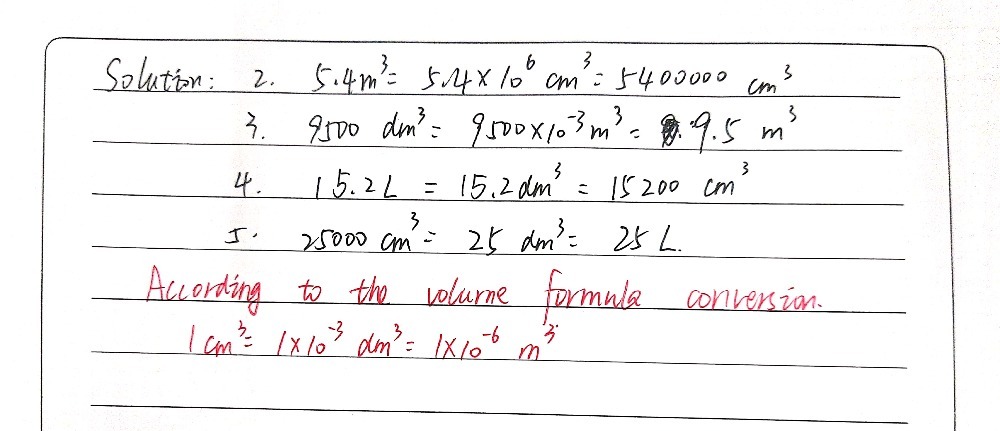 Solution: 2. 5.4m³ = 5.4×10⁶ cm³ = 5400000 cm³
3. 9500 dm³ = 9500×10⁻³ m³ = 9.5 m³
4. 15.2L = 15.2dm³ = 15200 cm³
5. 25000 cm³ = 25 dm³ = 25 L.
According to the volume formula conversion.
1 cm³ = 1×10⁻³ dm³ = 1×10⁻⁶ m³